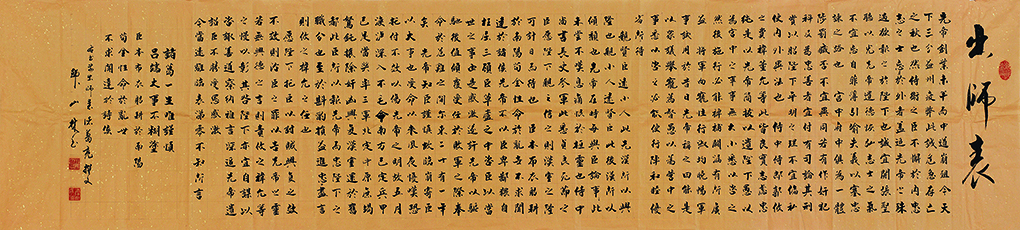 出師表
先帝創業未半而中道崩殂今天
下三分益州疲弊此誠危急存亡
之秋也然侍衛之臣不懈於內忠
志之士忘身於外者蓋追先帝之殊
遇欲報之於陛下也誠宜開張聖
聽以光先帝遺德恢弘志士之氣
不宜妄自菲薄引喻失義以塞忠
諫之路也宮中府中俱為一體
陟罰臧否不宜異同若有作奸犯
科及為忠善者宜付有司論其刑
賞以昭陛下平明之理不宜偏私
使內外異法也侍中侍郎郭攸
之費禕董允等此皆良實志慮忠
純是以先帝簡拔以遺陛下愚以
為宮中之事事無大小悉以咨之
然後施行必能裨補闕漏有所廣
益將軍向寵性行淑均曉暢軍
事試用於昔日先帝稱之曰能是
以眾議舉寵為督愚以為營中之
事悉以咨之必能使行陣和睦優
劣得所
親賢臣遠小人此先漢所以興
隆也親小人遠賢臣此後漢所以
傾頹也先帝在時每與臣論此事
未嘗不歎息痛恨於桓靈也侍中
尚書長史參軍此悉貞良死節之
臣願陛下親之信之則漢室之隆
可計日而待也臣本布衣躬耕
於南陽苟全性命於亂世不求聞
達於諸侯先帝不以臣卑鄙猥自
枉屈三顧臣於草廬之中咨臣以當
世之事由是感激遂許先帝以驅
馳後值傾覆受任於敗軍之際奉
命於危難之間爾來二十有一年
矣先帝知臣謹慎故臨崩寄臣
以大事也受命以來夙夜憂歎恐
托付不效以傷先帝之明故五月
渡瀘深入不毛今南方已定兵甲
已足當獎率三軍北定中原庶竭
駑鈍攘除奸凶興復漢室還於舊
都此臣所以報先帝而忠陛下之
職分也至於斟酌損益進盡忠言
則攸之禕允之任也
願陛下托臣以討賊興復之效
不效則治臣之罪以告先帝之靈
若無興德之言則責攸之禕允等
之慢以彰其咎陛下亦宜自謀以
諮諏善道察納雅言深追先帝遺
詔臣不勝受恩感激
今當遠離臨表涕零不知所言
諸葛一生唯謹慎
呂端大事不糊塗
臣本布衣躬耕於南陽
苟全性命於亂世
不求聞達於諸侯
出師表諸葛亮撰文